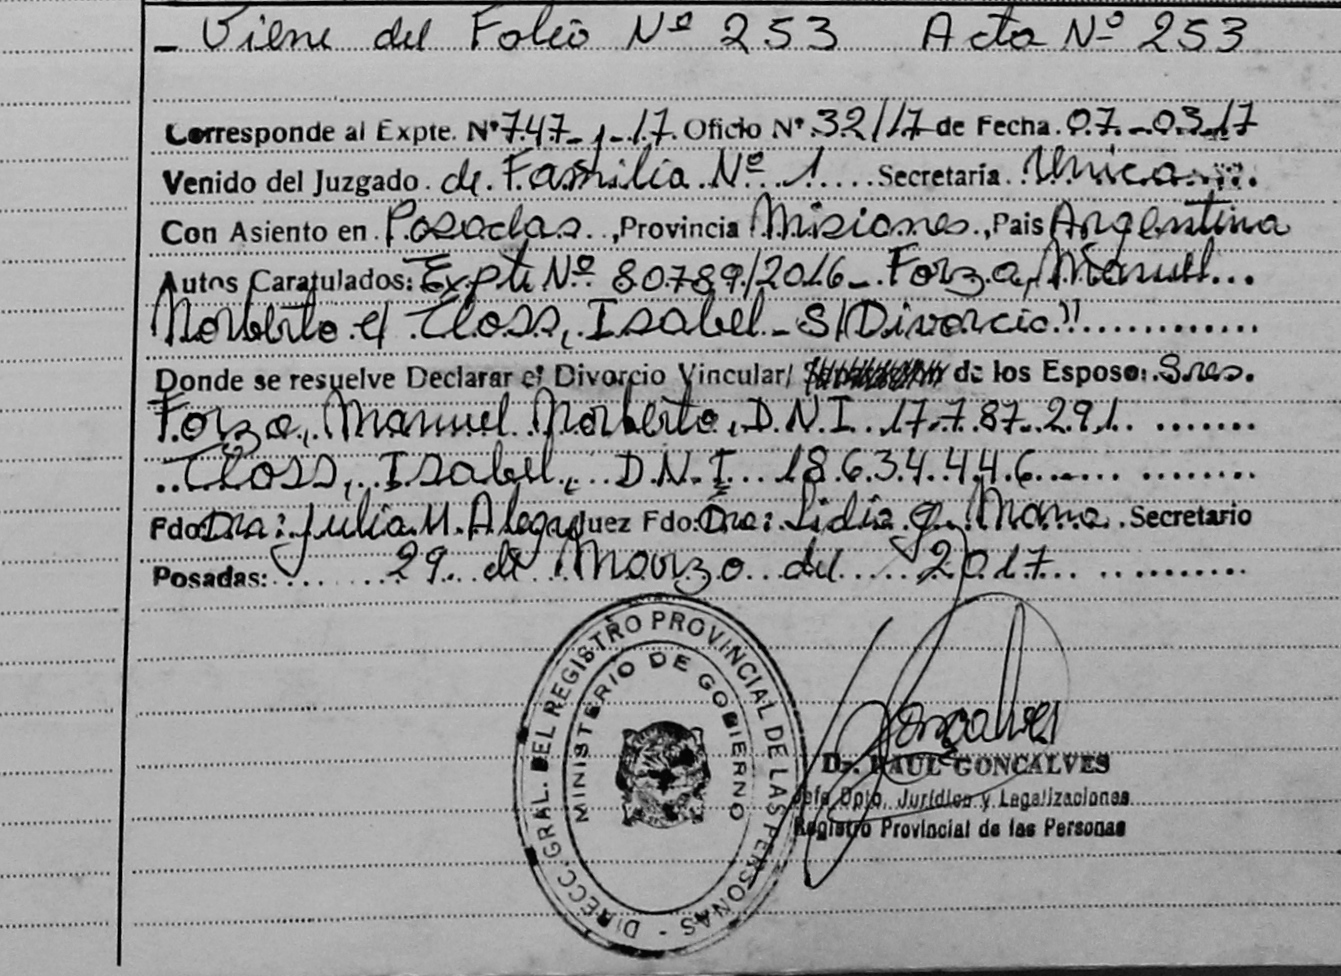 - Viene del Folio Nº 253 Acta Nº 253
Corresponde al Expte. Nº 747-J-17. Oficio Nº 32/17 de Fecha 07-03-17
Venido del Juzgado de Familia Nº 1 Secretaria Unica
Con Asiento en Posadas, Provincia Misiones, Pais Argentina
Autos Caratulados: Expte Nº 80789/2016 - Forza, Manuel
Norberto c/ Closs, Isabel - S/Divorcio"
Donde se resuelve Declarar el Divorcio Vincular/ de los Esposos: Sres.
Forza, Manuel Norberto, D.N.I. 17.787.291.
Closs, Isabel, D.N.I. 18.634.446
Fdo Dra: Julia M. Alegre Juez Fdo: Dra: Lidia Secretario
Posadas: 29 de Marzo del 2017
DIRECC. GRAL. DEL REGISTRO PROVINCIAL DE LAS PERSONAS -
MINISTERIO DE GOBIERNO
Goncalves
Dr. RAUL GONCALVES
Jefe Dpto. Jurídico y Legalizaciones
Registro Provincial de las Personas